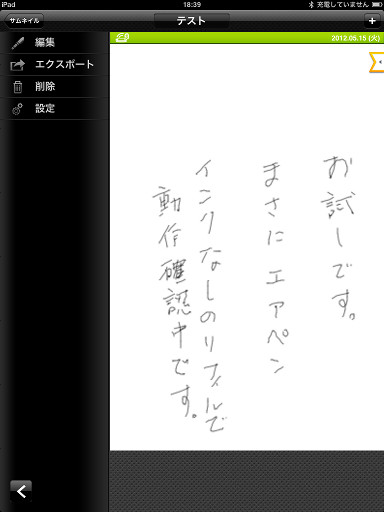 iPad
18:39
充電していません
サムネイル
テスト
+
編集
エクスポート
削除
設定
2012.05.15 (火)
お試しです。
まさにエアペン
インクなしのリフィルで
動作確認中です。